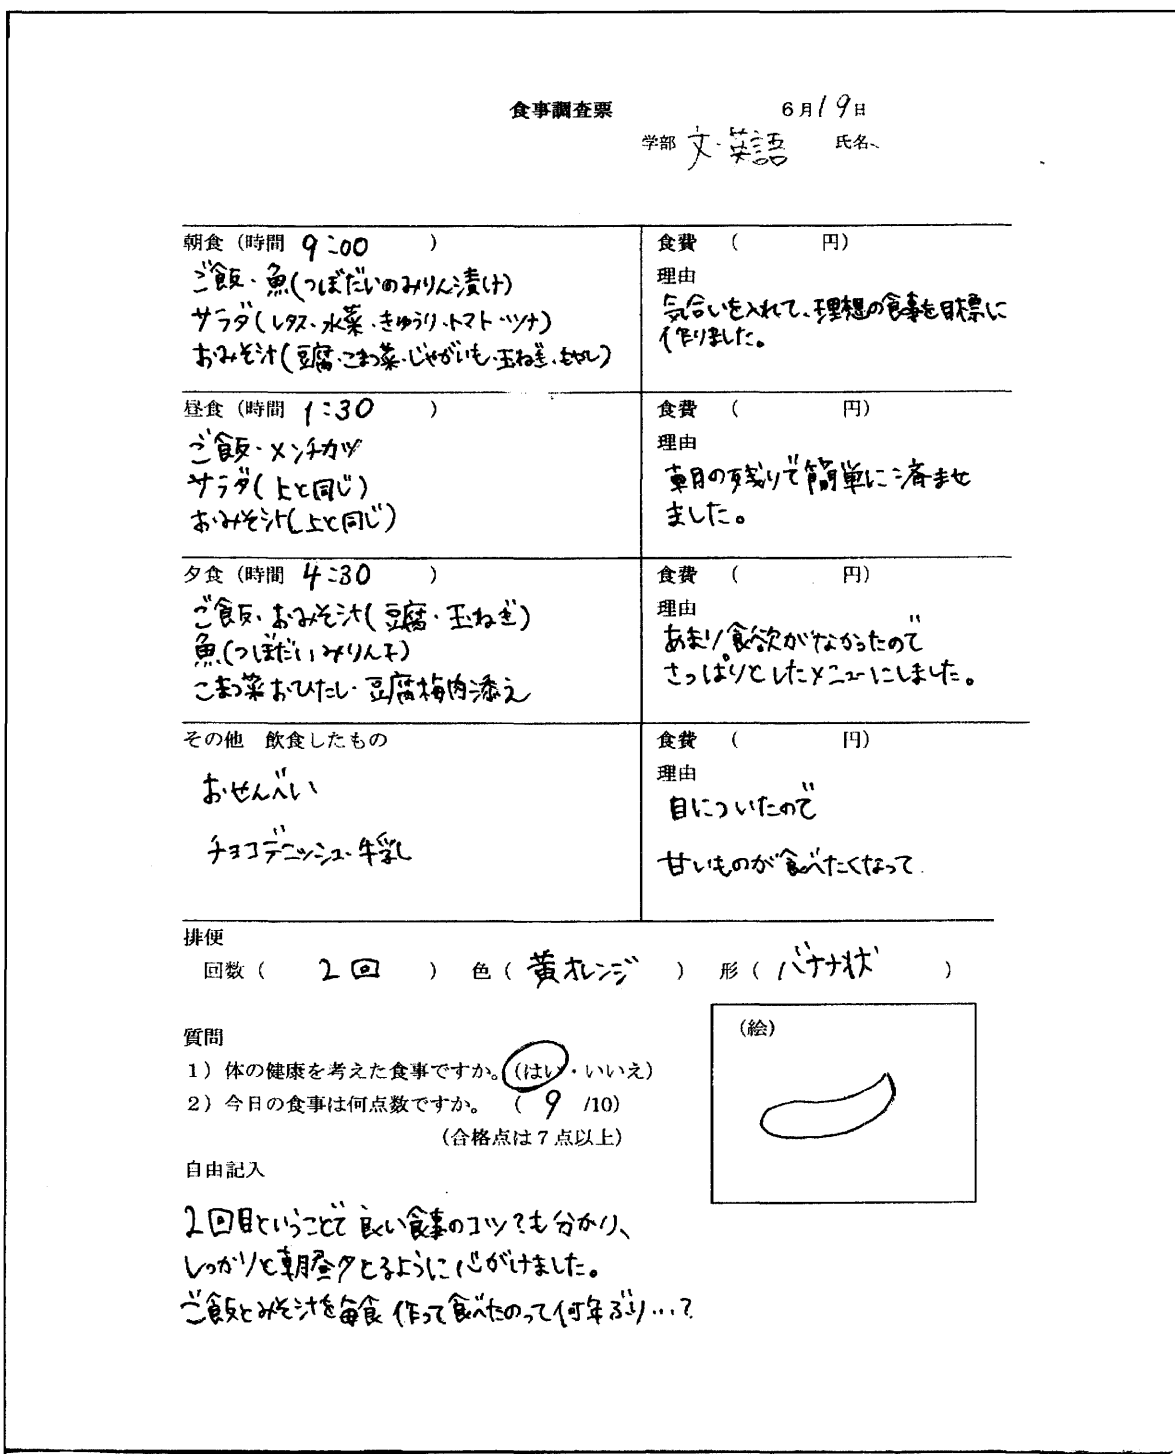 食事調査票 6月19日
学部 文・英語 氏名
朝食（時間 9:00 ）
ご飯・魚(つぼだいのみりん漬け)
サラダ(レタス・水菜・きゅうり・トマト・ツナ)
おみそ汁(豆腐・こまつ菜・じゃがいも・玉ねぎ・もやし)
食費 （ 円）
理由
気合いを入れて、理想の食事を目標に
作りました。
昼食（時間 1:30 ）
ご飯・メンチカツ
サラダ(上と同じ)
おみそ汁(上と同じ)
食費 （ 円）
理由
朝の残りで簡単に済ませ
ました。
夕食（時間 4:30 ）
ご飯・おみそ汁(豆腐・玉ねぎ)
魚(つぼだいみりん干)
こまつ菜おひたし・豆腐梅肉添え
食費 （ 円）
理由
あまり食欲がなかったので
さっぱりとしたメニューにしました。
その他 飲食したもの
おせんべい
チョコデニッシュ・牛乳
食費 （ 円）
理由
目についたので
甘いものが食べたくなって
排便
回数（ 2回 ） 色（ 黄オレンジ ） 形（ バナナ状 ）
質問
1）体の健康を考えた食事ですか。（はい・いいえ）
2）今日の食事は何点数ですか。 （ 9 /10）
（合格点は7点以上）
（絵）
自由記入
2回目ということで良い食事のコツ?も分かり、
しっかりと朝昼夕とるように心がけました。
ご飯とみそ汁を毎食作って食べたのって何年ぶり…?